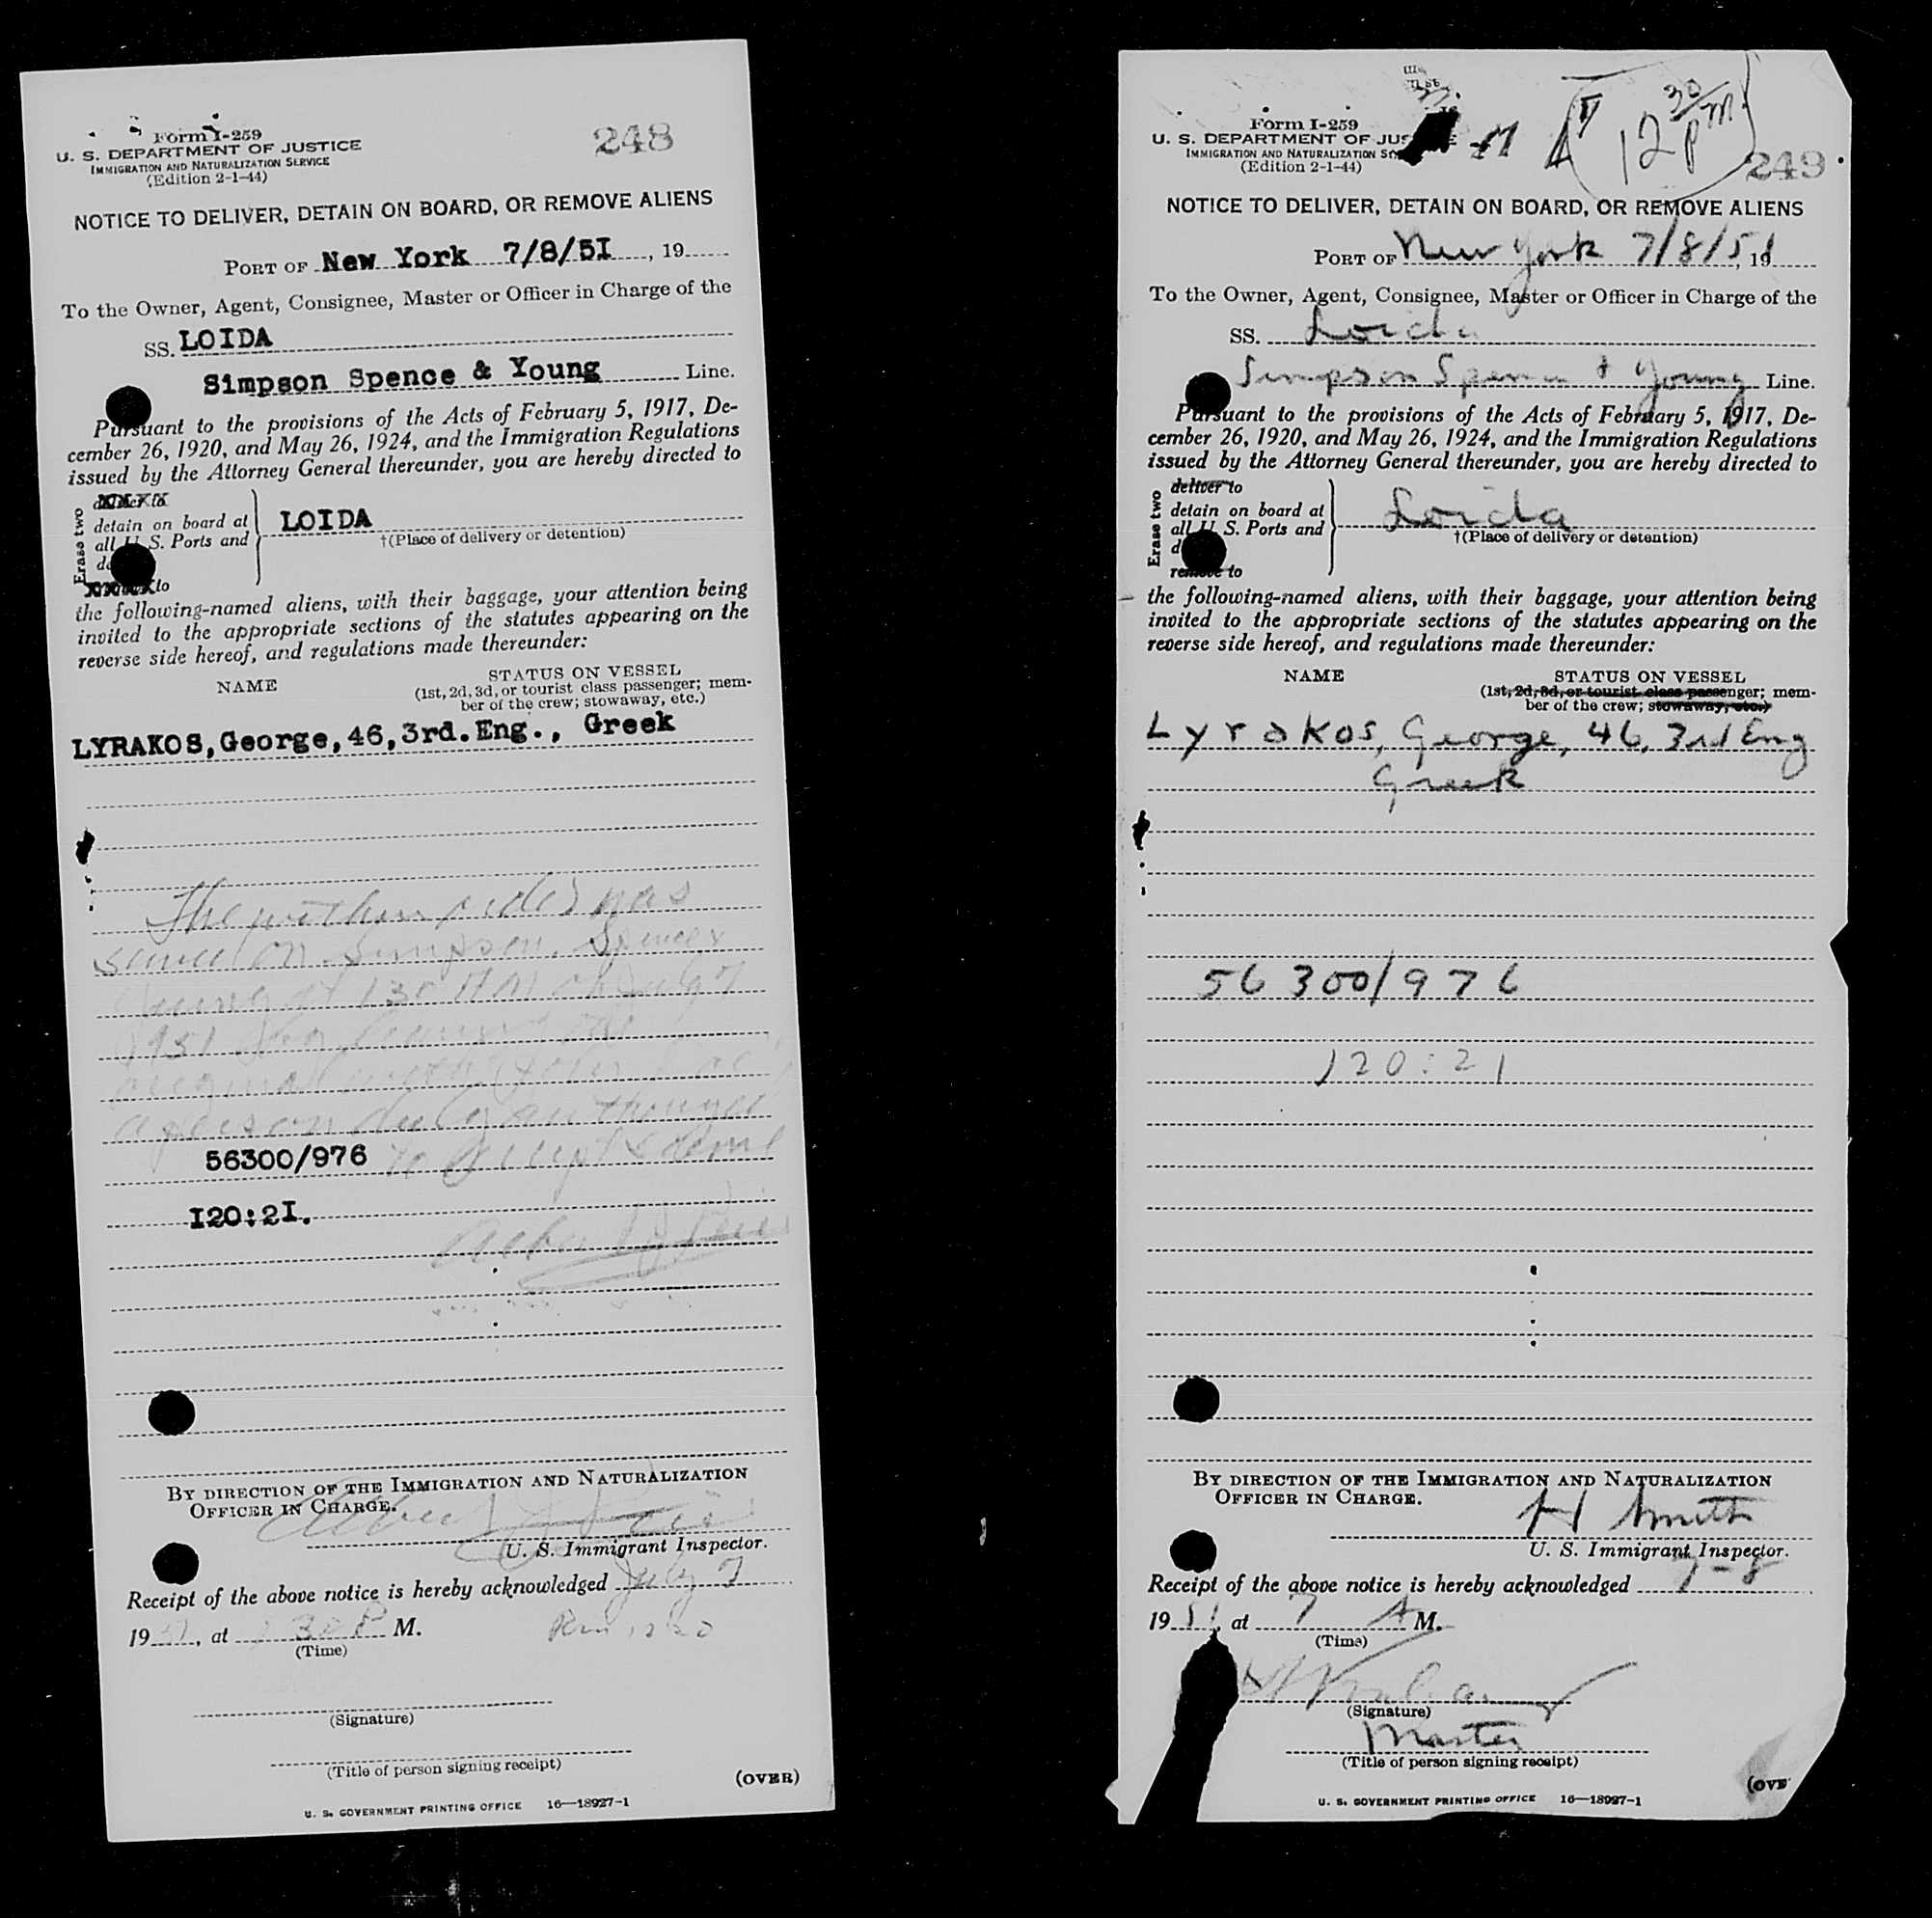 Form I-259
248
U. S. DEPARTMENT OF JUSTICE
IMMIGRATION AND NATURALIZATION SERVICE
(Edition 2-1-44)
NOTICE TO DELIVER, DETAIN ON BOARD, OR REMOVE ALIENS
PORT OF New York 7/8/5I, 19
To the Owner, Agent, Consignee, Master or Officer in Charge of the
SS. LOIDA
Simpson Spence & Young Line.
Pursuant to the provisions of the Acts of February 5, 1917, De-
cember 26, 1920, and May 26, 1924, and the Immigration Regulations
issued by the Attorney General thereunder, you are hereby directed to
Erase two
detain on board at
all U. S. Ports and
LOIDA
†(Place of delivery or detention)
to
the following-named aliens, with their baggage, your attention being
invited to the appropriate sections of the statutes appearing on the
reverse side hereof, and regulations made thereunder:
NAME
STATUS ON VESSEL
(1st, 2d, 3d, or tourist class passenger; mem-
ber of the crew; stowaway, etc.)
LYRAKOS, George, 46, 3rd. Eng., Greek
The within was
on Simpson, Spence &
Young at 130 on July 7
1951 by leaving the
original with
a person duly authorized
56300/976 to accept same
I20:2I.
BY DIRECTION OF THE IMMIGRATION AND NATURALIZATION
OFFICER IN CHARGE.
U. S. Immigrant Inspector.
Receipt of the above notice is hereby acknowledged July 7
19 51, at 1 30 P M.
(Time)
(Signature)
(Title of person signing receipt)
(OVER)
U. S. GOVERNMENT PRINTING OFFICE 16—18927-1
12 30 PM
Form I-259
249
U. S. DEPARTMENT OF JUS
IMMIGRATION AND NATURALIZATION
(Edition 2-1-44)
NOTICE TO DELIVER, DETAIN ON BOARD, OR REMOVE ALIENS
PORT OF New York 7/8/51, 19
To the Owner, Agent, Consignee, Master or Officer in Charge of the
SS. Loida
Simpson Spence & Young Line.
Pursuant to the provisions of the Acts of February 5, 1917, De-
cember 26, 1920, and May 26, 1924, and the Immigration Regulations
issued by the Attorney General thereunder, you are hereby directed to
Erase two
deliver to
detain on board at
all U. S. Ports and
Loida
†(Place of delivery or detention)
remove to
the following-named aliens, with their baggage, your attention being
invited to the appropriate sections of the statutes appearing on the
reverse side hereof, and regulations made thereunder:
NAME
STATUS ON VESSEL
(1st, 2d, 3d, or tourist class passenger; mem-
ber of the crew; stowaway, etc.)
Lyrakos, George, 46, 3rd Eng
Greek
56300/976
120:21
BY DIRECTION OF THE IMMIGRATION AND NATURALIZATION
OFFICER IN CHARGE.
H Smith
U. S. Immigrant Inspector.
Receipt of the above notice is hereby acknowledged 7-8
19 51, at 7 A M.
(Time)
(Signature)
Master
(Title of person signing receipt)
(OVE
U. S. GOVERNMENT PRINTING OFFICE 16—18927-1